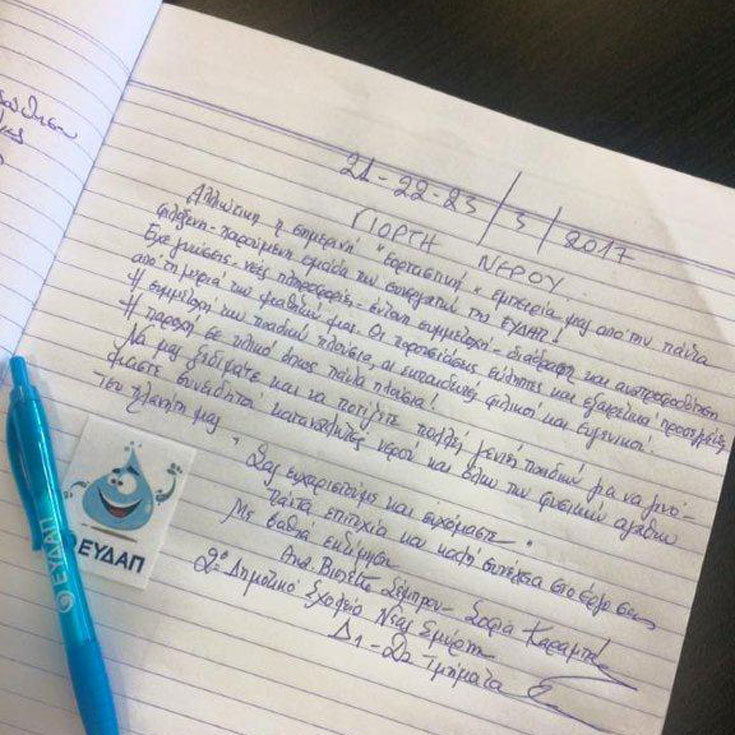 21-22-23/3/2017
ΓΙΟΡΤΗ ΝΕΡΟΥ
Αλλιώτικη η σημερινή "εορταστική" εμπειρία μας από την πάντα
φιλόξενη - χαρούμενη ομάδα των συνεργατών της ΕΥΔΑΠ!
Είχε γνώσεις - νέες πληροφορίες - έντονη συμμετοχή - διάδραση και ανατροφοδότηση
από τη μεριά των μαθητών μας. Οι παρουσιάσεις εύληπτες και εξαιρετικά προσεγμένες
Η συμμετοχή των παιδιών πλούσια, οι εκπαιδευτές φιλικοί και ευγενικοί.
Η παροχή σε υλικό όπως πάντα πλούσια!
Να μας ξεδιψάτε και να ποτίζετε πολλές γενιές παιδιών για να γινό-
μαστε συνειδητοί καταναλωτές νερού και όλων των φυσικών αγαθών
του πλανήτη μας
"Σας ευχαριστούμε και ευχόμαστε"
πάντα επιτυχία και καλή συνέχεια στο έργο σας
Με βαθιά εκτίμηση
Βιολέττα - Σοφία
2º Δημοτικό Σχολείο Νέας Σμύρνης
Δ1 - Δ2 Τμήματα
ΕΥΔΑΠ
ΕΥΔΑΠ